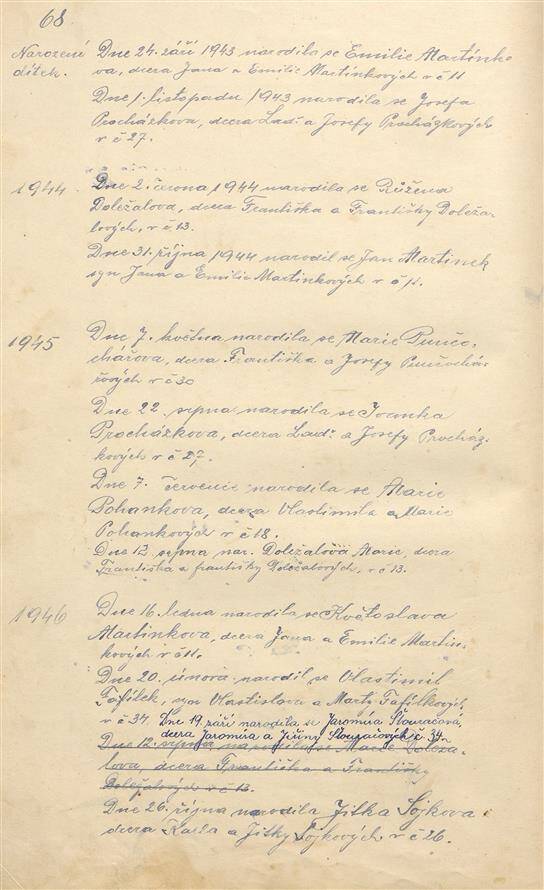 68.
Narození dítek. Dne 24. září 1943 narodila se Emilie Martínko
va, dcera Jana a Emilie Martínkových v č 11
Dne 1. listopadu 1943 narodila se Josefa
Procházkova, dcera Lad. a Josefy Procházkových
v č 27.
1944 Dne 2. června 1944 narodila se Růžena
Doležalova, dcera Františka a Františky Doleža-
lových, v č 13.
Dne 31. října 1944 narodil se Jan Martinek
syn Jana a Emilie Martinkových v č 11.
1945 Dne 7. května narodila se Marie Punčo-
chářova, dcera Františka a Josefy Punčochá-
řových v č 30
Dne 22. srpna narodila se Ivanka
Procházkova, dcera Lad. a Josefy Procház-
kových v č 27.
Dne 7. července narodila se Marie
Pohankova, dcera Vlastimila a Marie
Pohankových v č 18.
Dne 12. srpna nar. Doležalová Marie, dcera
Františka a františky Doležalových, v č 13.
1946 Dne 16. ledna narodila se Květoslava
Martinkova, dcera Jana a Emilie Martin-
kových v č 11.
Dne 20. února narodil se Vlastimil
Fafílek, syn Vlastislava a Marty Fafílkových,
v č 34. Dne 19. září narodila se Jaromíra Šťouračová,
dcera Jaromíra a Jiřiny č. 34
Dne 12. srpna narodila se Marie Doleža-
lova, dcera Františka a Františky
Doležalových v č 13.
Dne 26. října narodila Jitka Sojkova
dcera Karla a Jitky Sojkových v č 26.